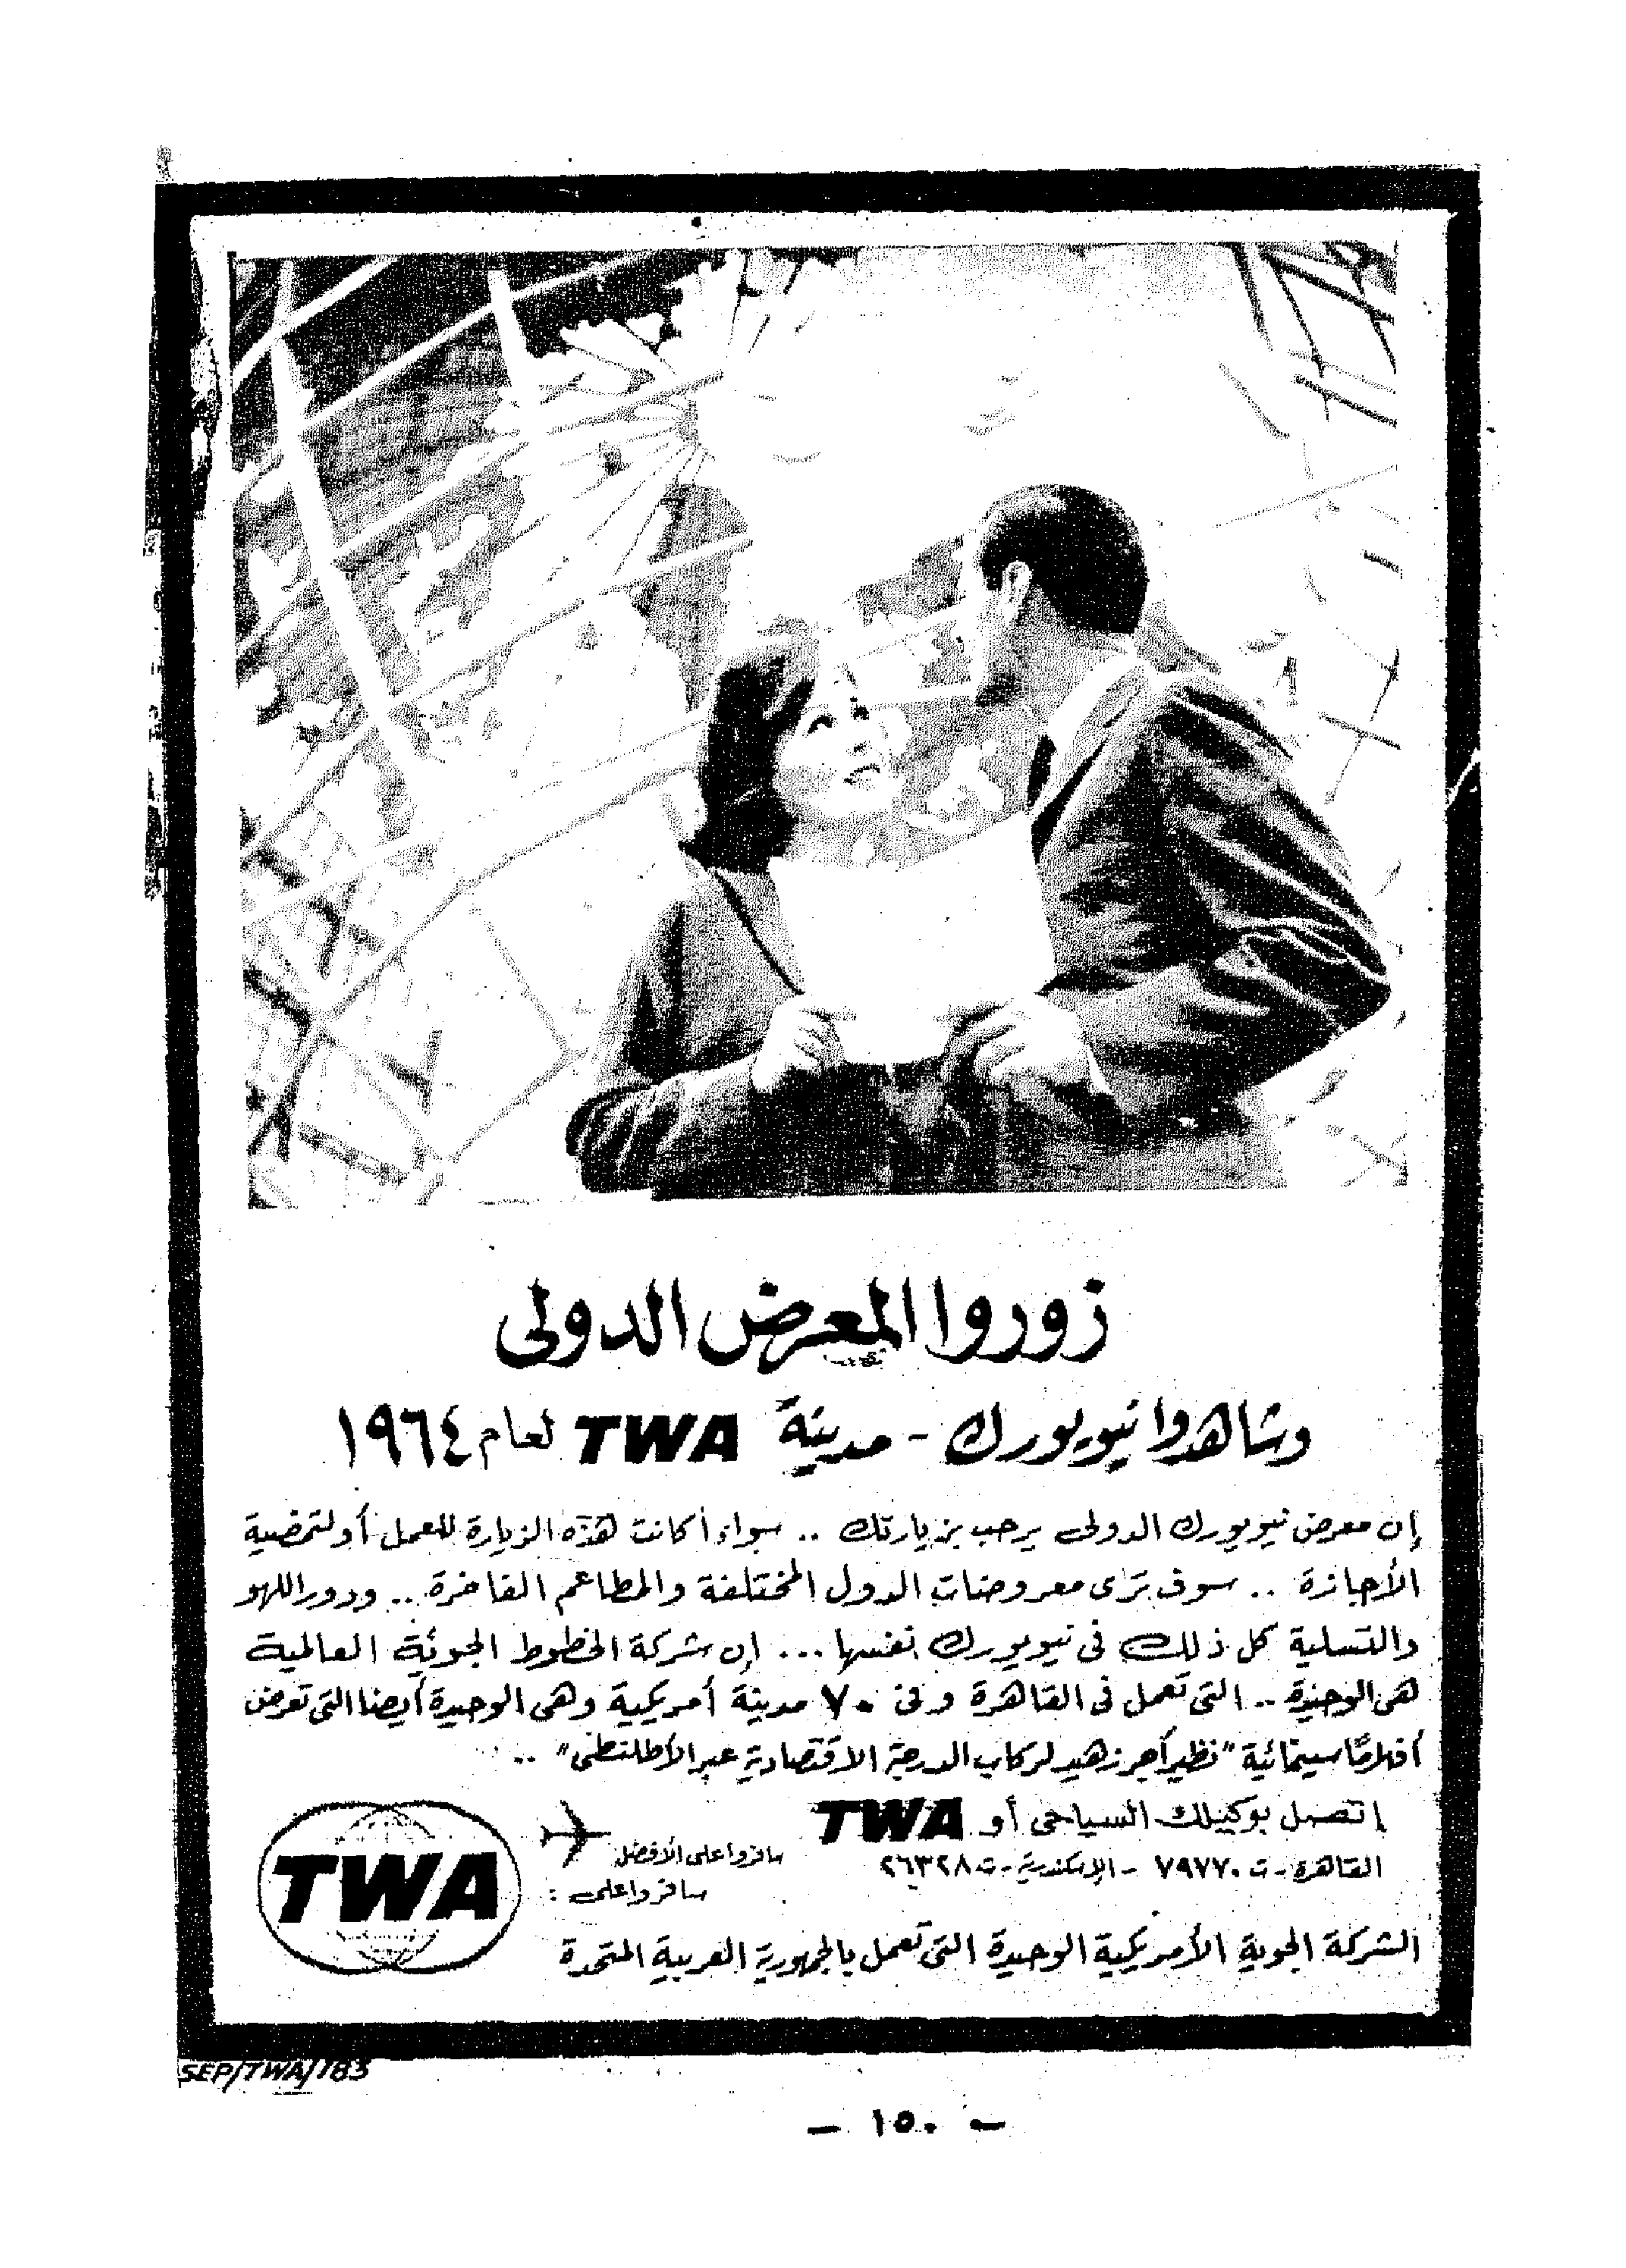 زوروا المعرض الدولى
وشاهدوا نيويورك - مدينة TWA لعام ١٩٦٤
إن معرض نيويورك الدولى يرحب بزيارتك .. سواء أكانت هذه الزيارة للعمل أو لتمضية
الأجازة .. سوف ترى معروضات الدول المختلفة والمطاعم الفاخرة .. ودور اللهو
والتسلية كل ذلك فى نيويورك نفسها ... إن شركة الخطوط الجوية العالمية
هى الوحيدة .. التى تعمل فى القاهرة وفى ٧٠ مدينة أمريكية وهى الوحيدة أيضا التى تعرض
أفلامًا سينمائية "نظير أجر زهيد لركاب الدرجة الاقتصادية عبر الأطلنطى" ..
إتصل بوكيلك السياحى أو TWA
القاهرة - ت ٧٩٧٧٠ - الإسكندرية - ت ٢٦٣٢٨
سافروا على الأفضل
سافروا على :
TWA
الشركة الجوية الأمريكية الوحيدة التى تعمل بالجمهورية العربية المتحدة
SEP/TWA/183
- ١٥٠ -